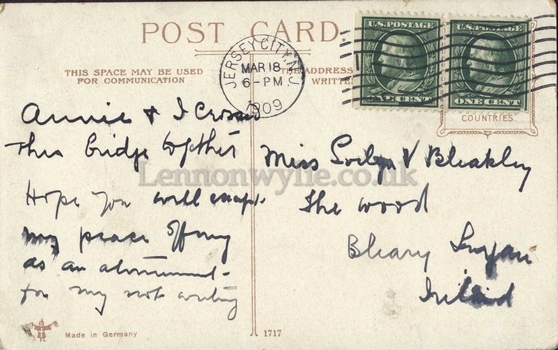 POST CARD.
THIS SPACE MAY BE USED
FOR COMMUNICATION
THE ADDRESS
WRITTE
COUNTRIES
JERSEY CITY N.J
MAR 18
6-PM
1909
U.S. POSTAGE
ONE CENT
U.S. POSTAGE
ONE CENT
Annie & I crossed
this bridge together
Hope you will accept
my peace offering
as an atonement
for my not writing
Miss V Bleakley
The wood
Bleary Lurgan
Ireland
Lennonwylie.co.uk
Made in Germany
1717